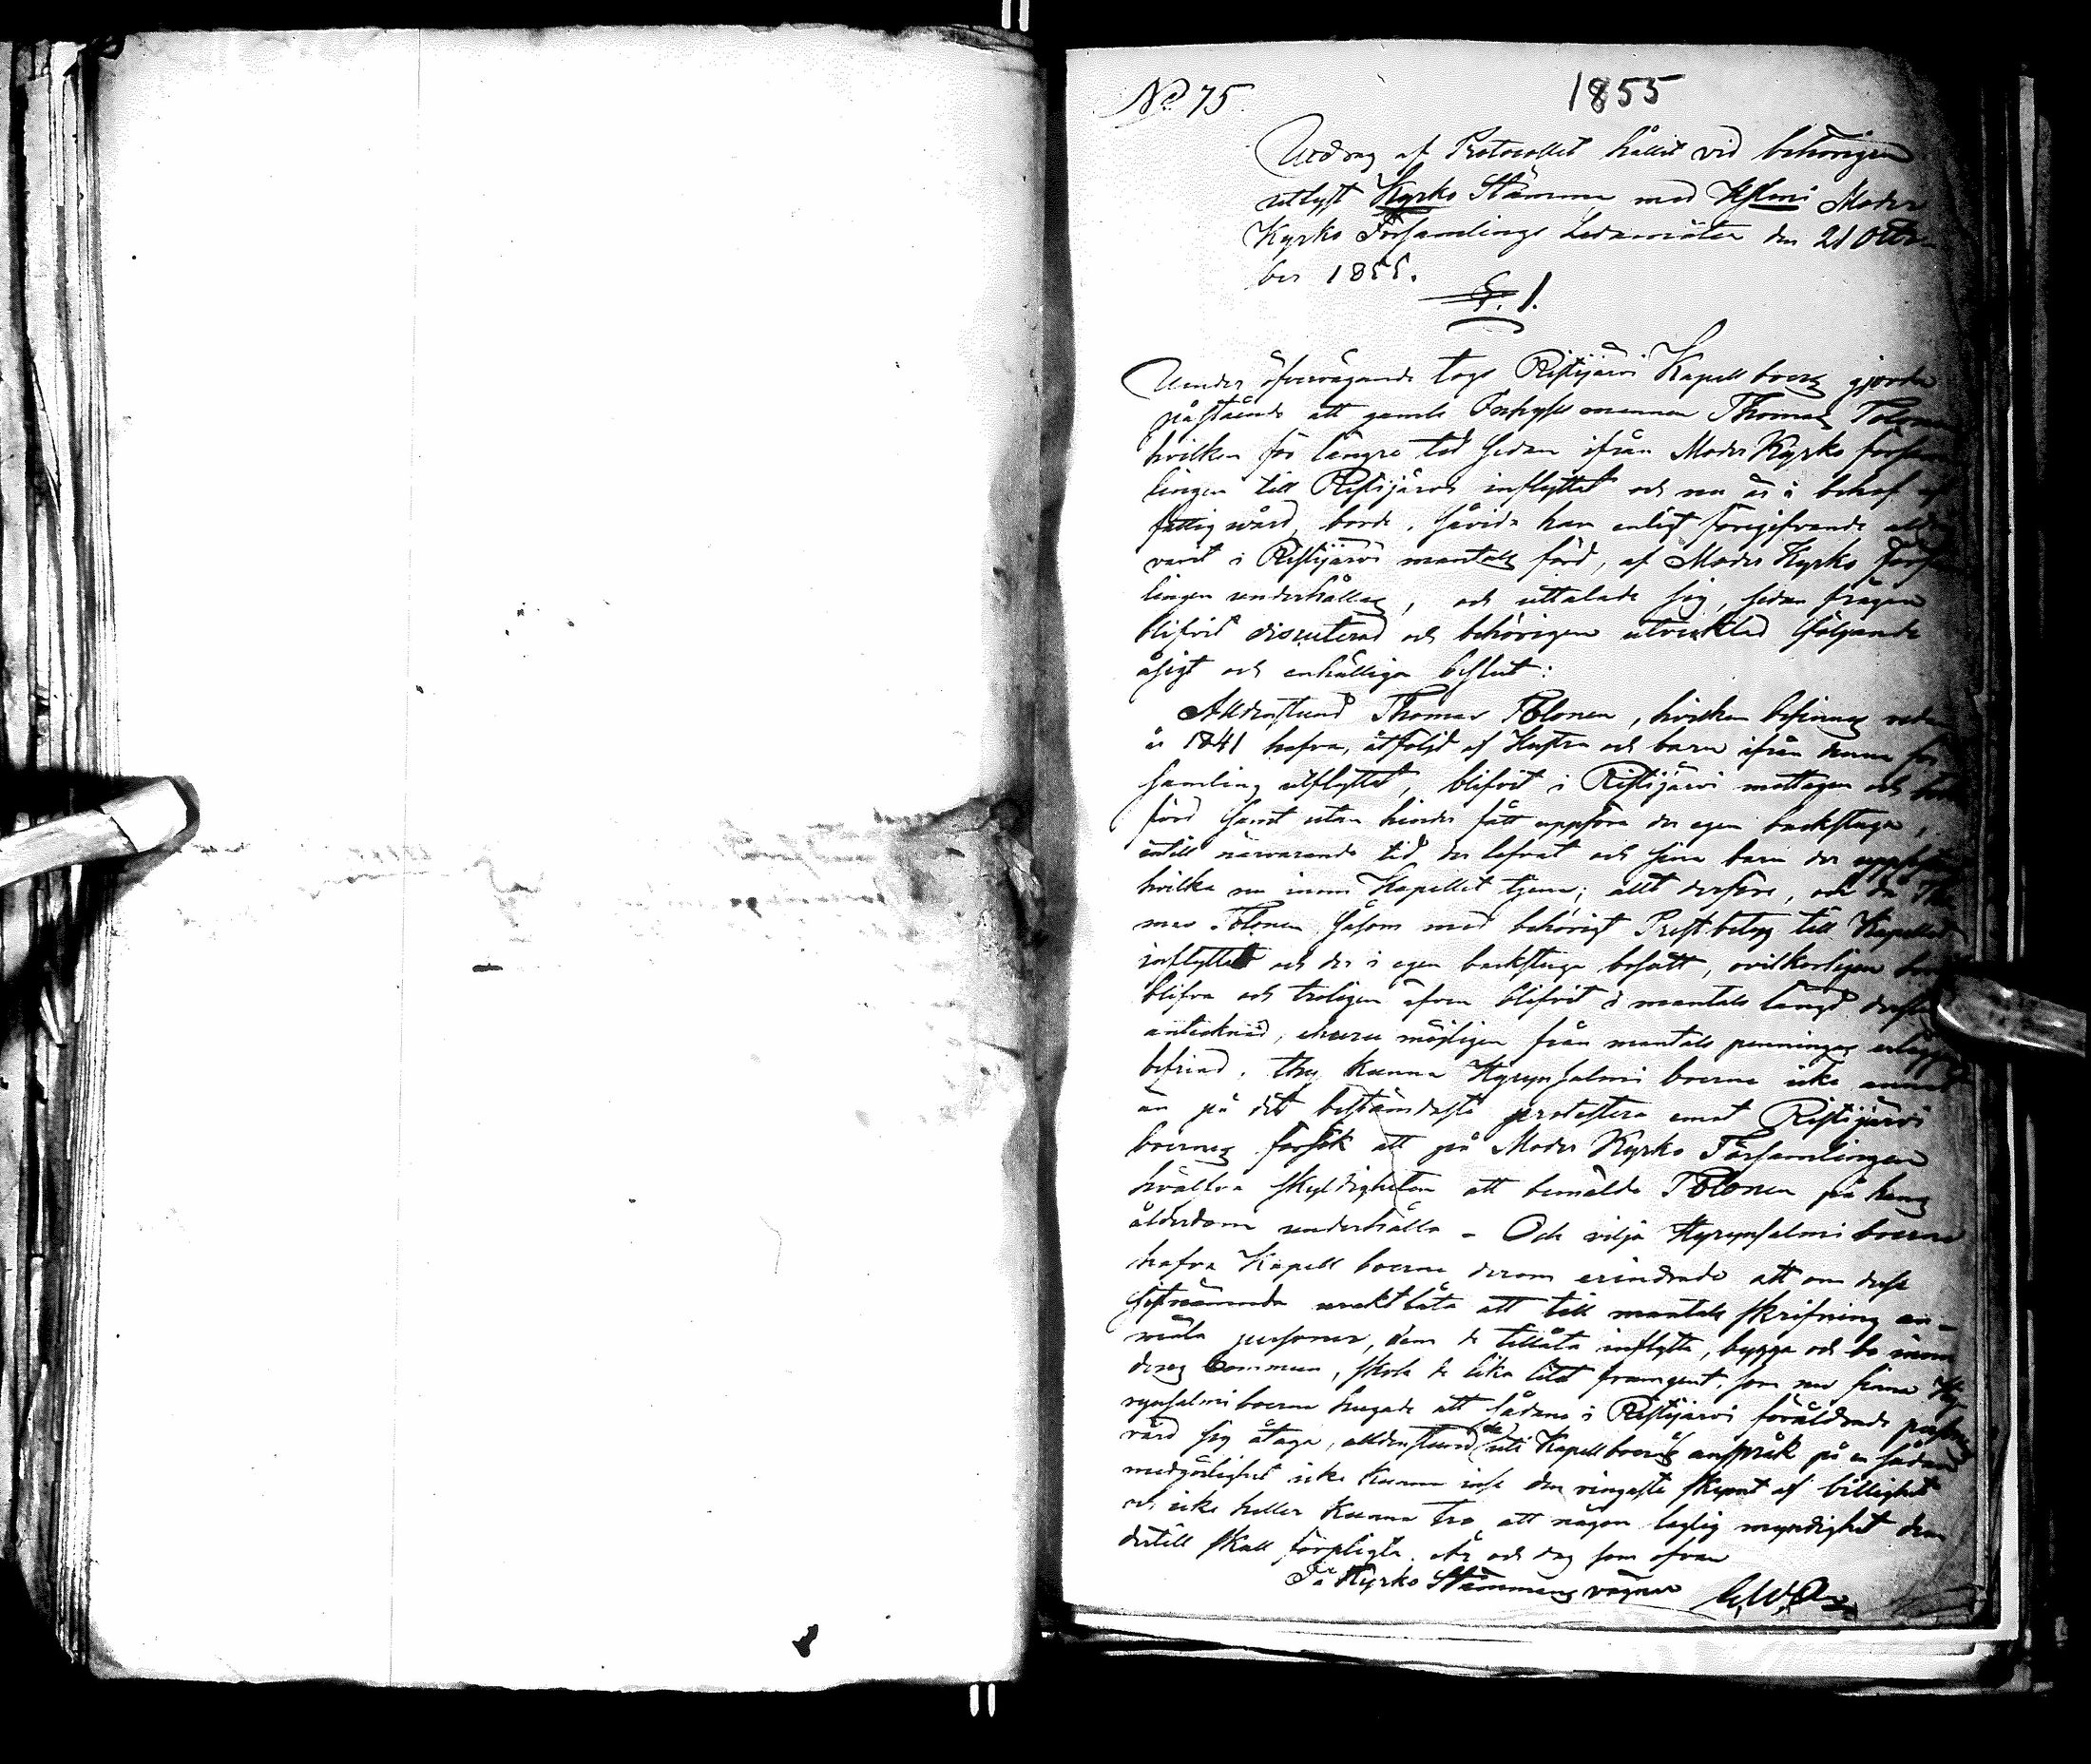 No 75.
1855
Utdrag af Protocollet hållit vid behörigen
utlyst Kyrko Stämma med Hslmi Moder
Kyrko Församlings Ledamöter den 21 Octo
ber 1855.
§. 1.
Under öfvervägande togs Ristijärvi Kapellboers gjorde
påstående att gamle Inhyses mannen Thomas Tolonen
hvilken för längre tid sedan ifrån Moder Kyrko försam
lingen till Ristijärvi inflyttat och nu är i behof af
fattigvård, borde, såvida han enligt föregifvande aldrig
varit i Ristijärvi mantals förd, af Moder Kyrko Försam
lingen underhållas, och uttalade sig, sedan frågan
blifvit discuterad och behörigen utvecklad följande
åsigt och enhälliga beslut:
Alldenstund Thomas Tolonen, hvilken befinnes redan
år 1841 hafva, åtföljd af Hustru och barn ifrån denna för
samling utflyttat, blifvit i Ristijärvi mottagen och
förd samt utan hinder fått uppföra der egen backstuga,
intill närvarande tid der lefvat och sina barn der uppfostrat
hvilka nu inom Kapellet tjena; allt derföre, och då Tho
mas Tolonen såsom med behörigt Prestbetyg till Kapellet
inflyttat och der i egen backstuga bosatt, ovilkorligen bort
blifva och troligen äfven blifvit i mantals längd derstädes
antecknad, ehuru möjligen från mantals penningars erläggande
befriad, thy kunna Hyrynsalmi boerne icke annat
än på det bestämdaste protestera emot Ristijärvi
boernes försök att på Moder Kyrko Församlingen
hvälfva skyldigheten att bemälde Tolonen på hans
ålderdom underhålla – Och vilja Hyrynsalmi boerne
hafva Kapell boerne derom erindrade att om desse
sistnämnda uraktlåta att till mantals skrifning an-
mäla personer, dem de tillåta inflytta, bygga och bo inom
deras Commun, skola de lika litet framgent, som nu finna Hy
rynsalmi boerne hugade att sådane i Ristijärvi föråldrade personers
vård sig åtaga, alldenstund de uti Kapellboernes anspråk på en sådan
medgörlighet icke kunna inse den ringaste skymt af billighet
och icke heller kunna tro att någon laglig myndighet dem
dertill skall förpligta. År och dag som ofvan
På Kyrko Stämmans vägnar